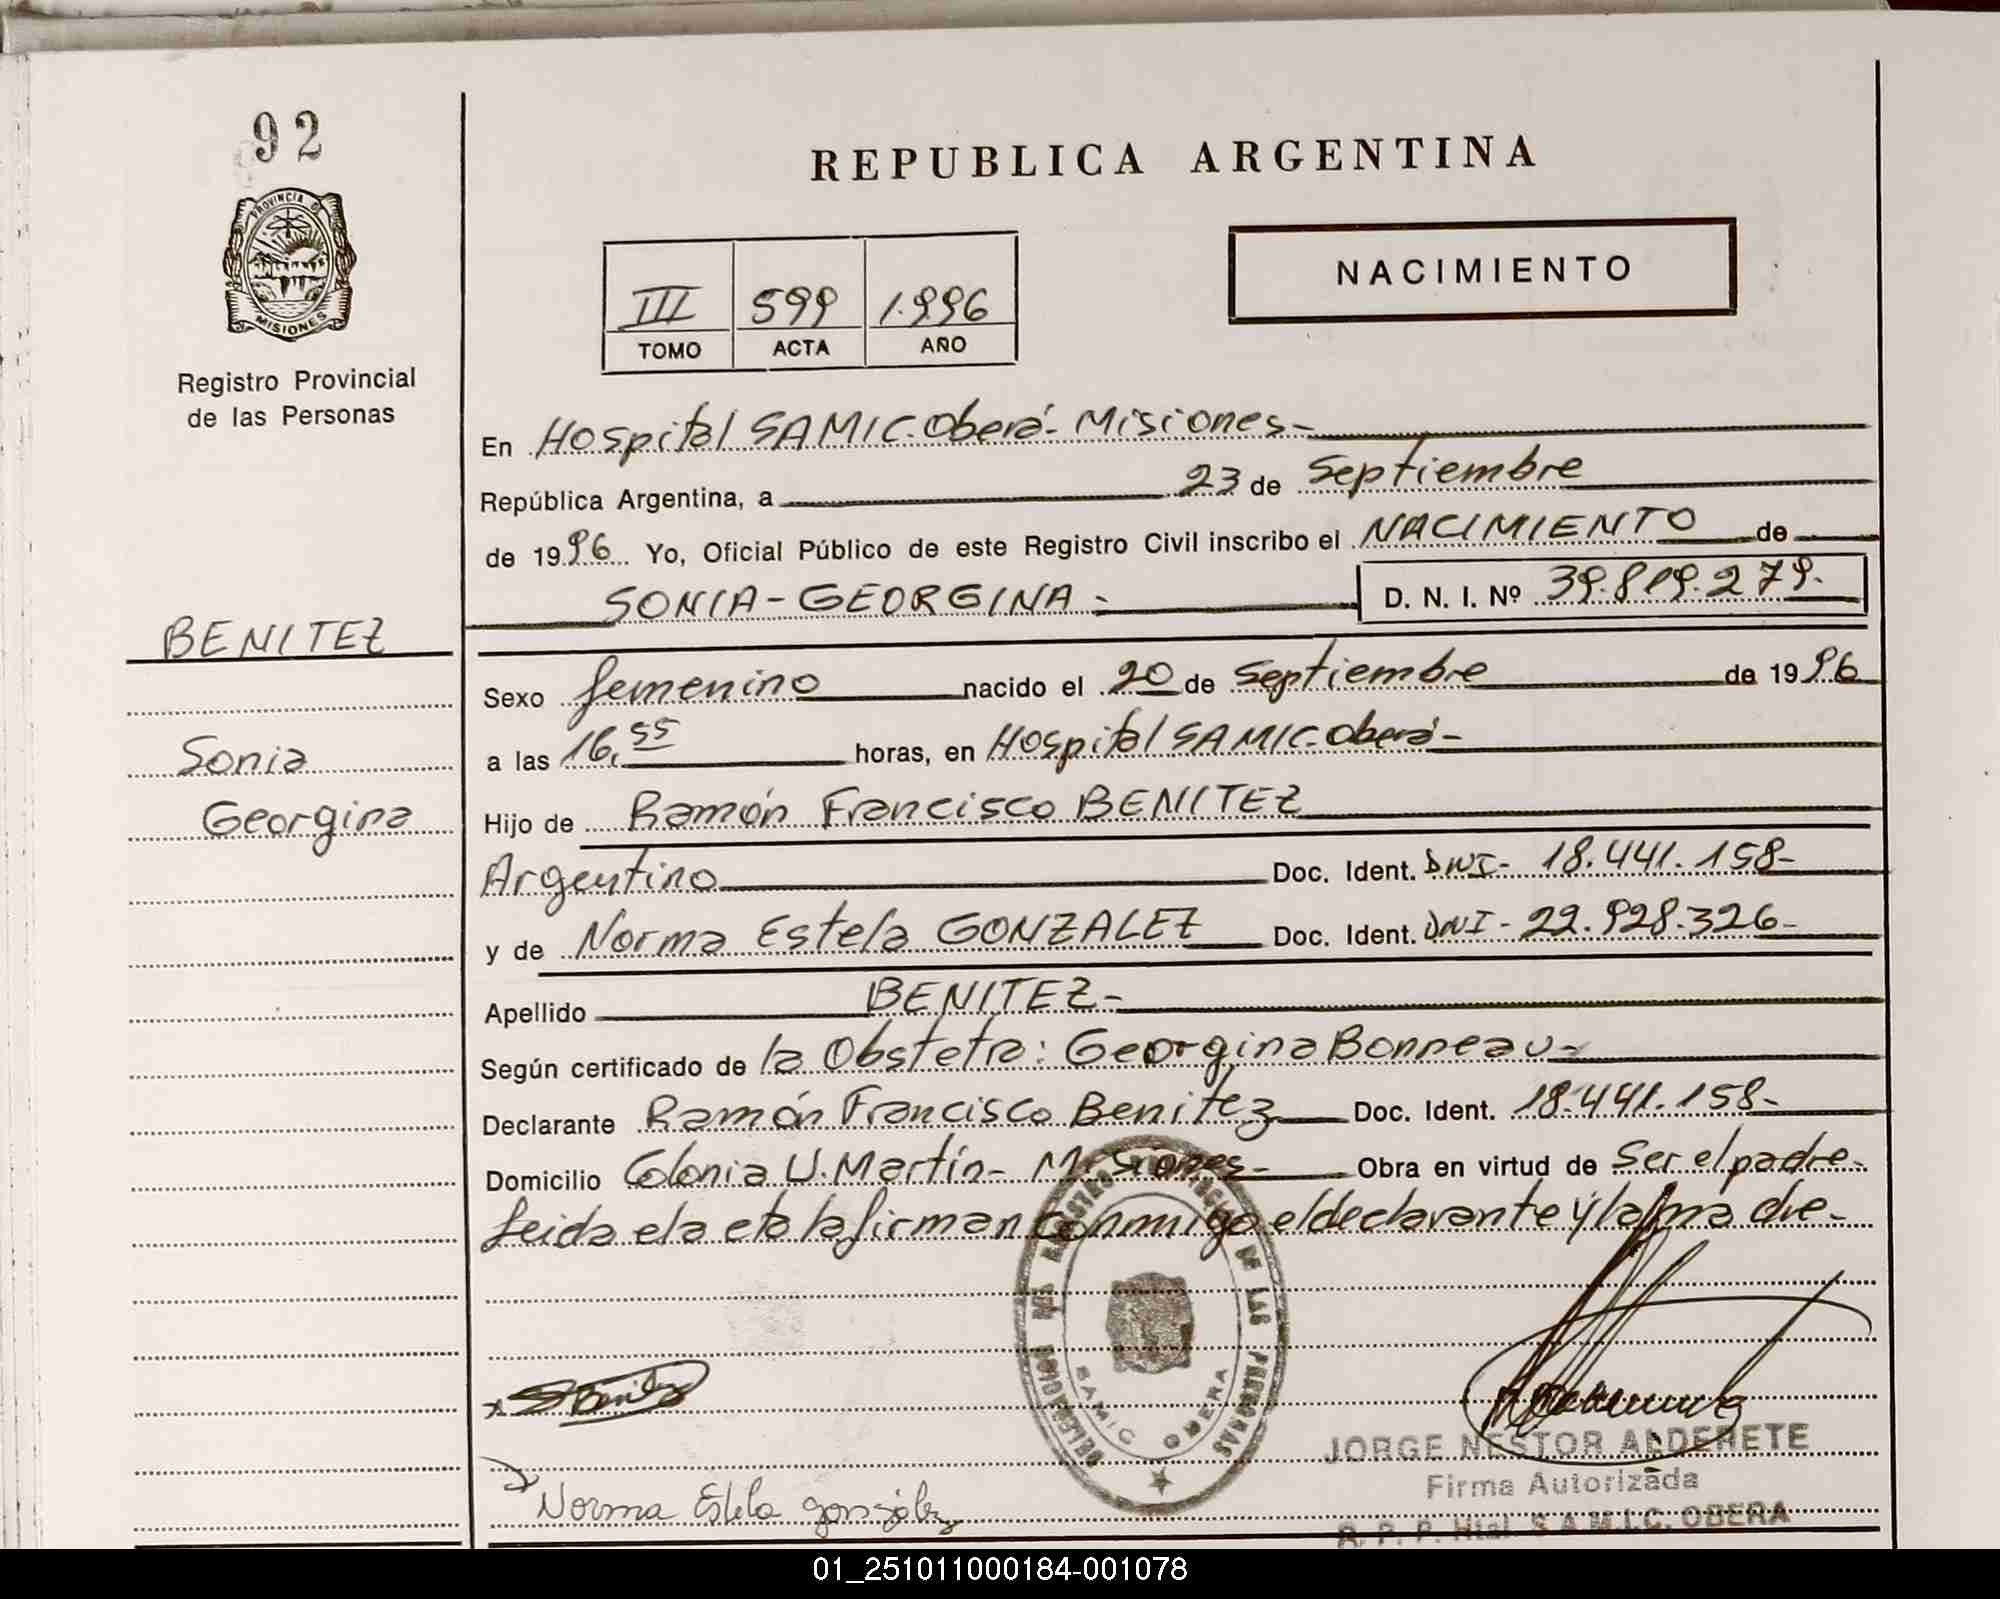 92
PROVINCIA D
MISIONES
Registro Provincial
de las Personas
BENITEZ
Sonia
Georgina
REPUBLICA ARGENTINA
III 599 1.996
TOMO ACTA AÑO
NACIMIENTO
En Hospital SAMIC. Oberá- Misiones-
República Argentina, a 23 de Septiembre
de 1996 Yo, Oficial Público de este Registro Civil inscribo el NACIMIENTO de
SONIA-GEORGINA- D. N. I. Nº 39.819.279.
Sexo femenino nacido el 20 de Septiembre de 1996
a las 16,55 horas, en Hospital SAMIC. Oberá-
Hijo de Ramón Francisco BENITEZ
Argentino Doc. Ident. DNI- 18.441.158-
y de Norma Estela GONZALEZ Doc. Ident. DNI- 22.928.326-
Apellido BENITEZ-
Según certificado de la Obstetra: Georgina Bonneau-
Declarante Ramón Francisco Benitez Doc. Ident. 18.441.158-
Domicilio Colonia U. Martín- Misiones- Obra en virtud de Ser el padre-
Leida el a cta la firman conmigo el declarante y la ma dre-
DE LAS PERSONAS
SAMIC OBERA
Benitez
JORGE NESTOR ALDERETE
Firma Autorizada
R. P. P. Htal. S.A.M.I.C. OBERA
Norma Estela gonzález
01_251011000184-001078